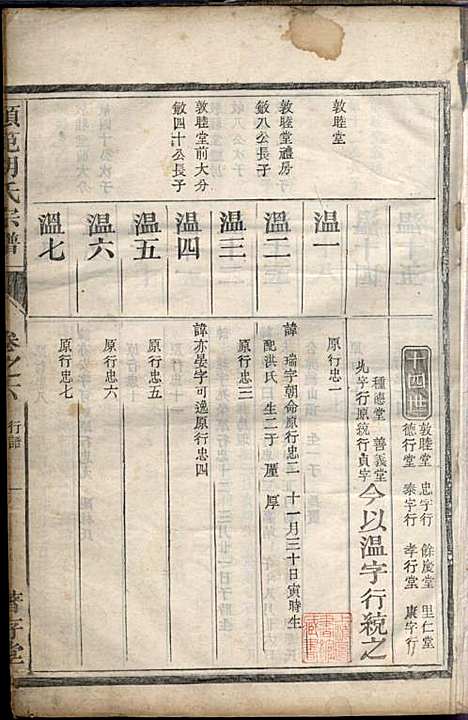 十四世
敦睦堂 忠字行 餘慶堂 里仁堂
德行堂 泰字行 孝行堂 康字行
種德堂 善義堂
先字行原統行貞字
今以溫字行統之
敦睦堂
溫一
原行忠一
敦睦堂禮房
敏八公長子
溫二
諱 瑞字朝命原行忠二 十一月三十日寅時生
配洪氏 生二子 厘 厚
溫三
原行忠三
敦睦堂前大分
敏四十公長子
溫四
諱亦晏字可逸原行忠四
溫五
原行忠五
溫六
原行忠六
溫七
原行忠七
胡氏宗譜
卷之六
行譜
一